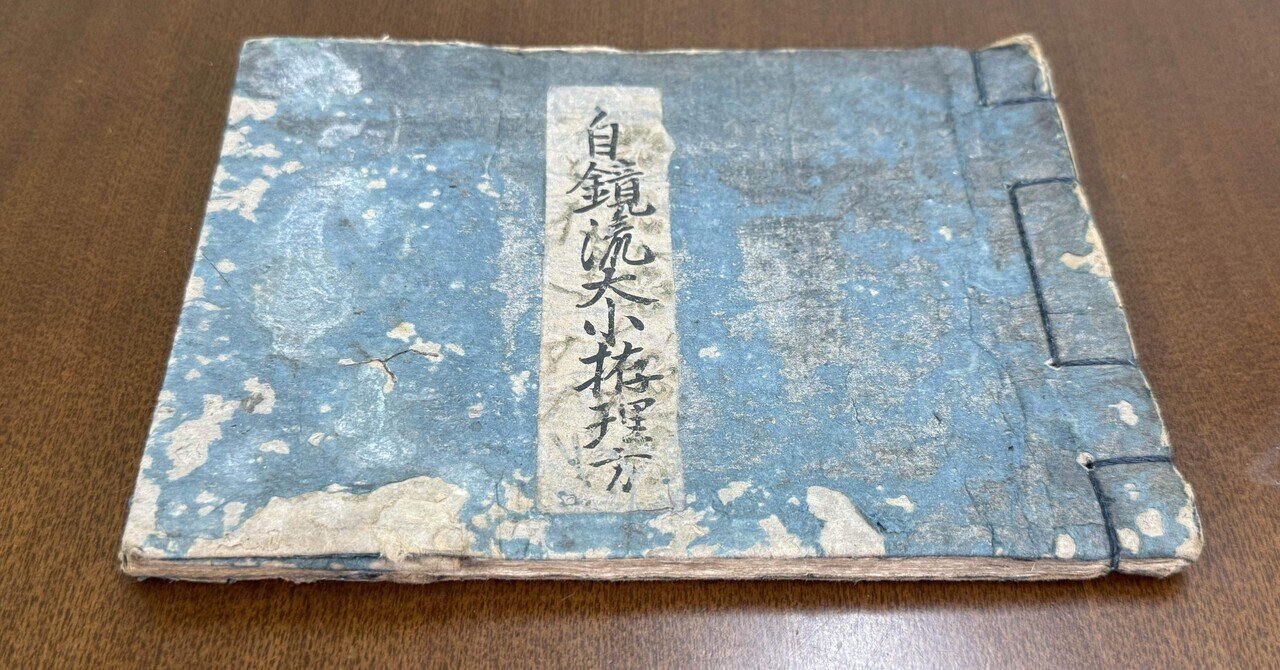 自鏡流大小拵理方